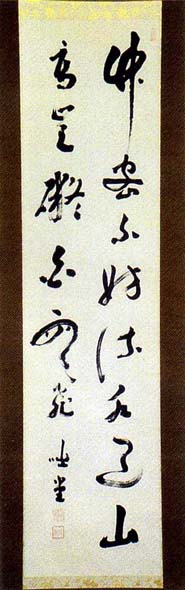 竹密不妨流水過山
高豈礙白雲飛